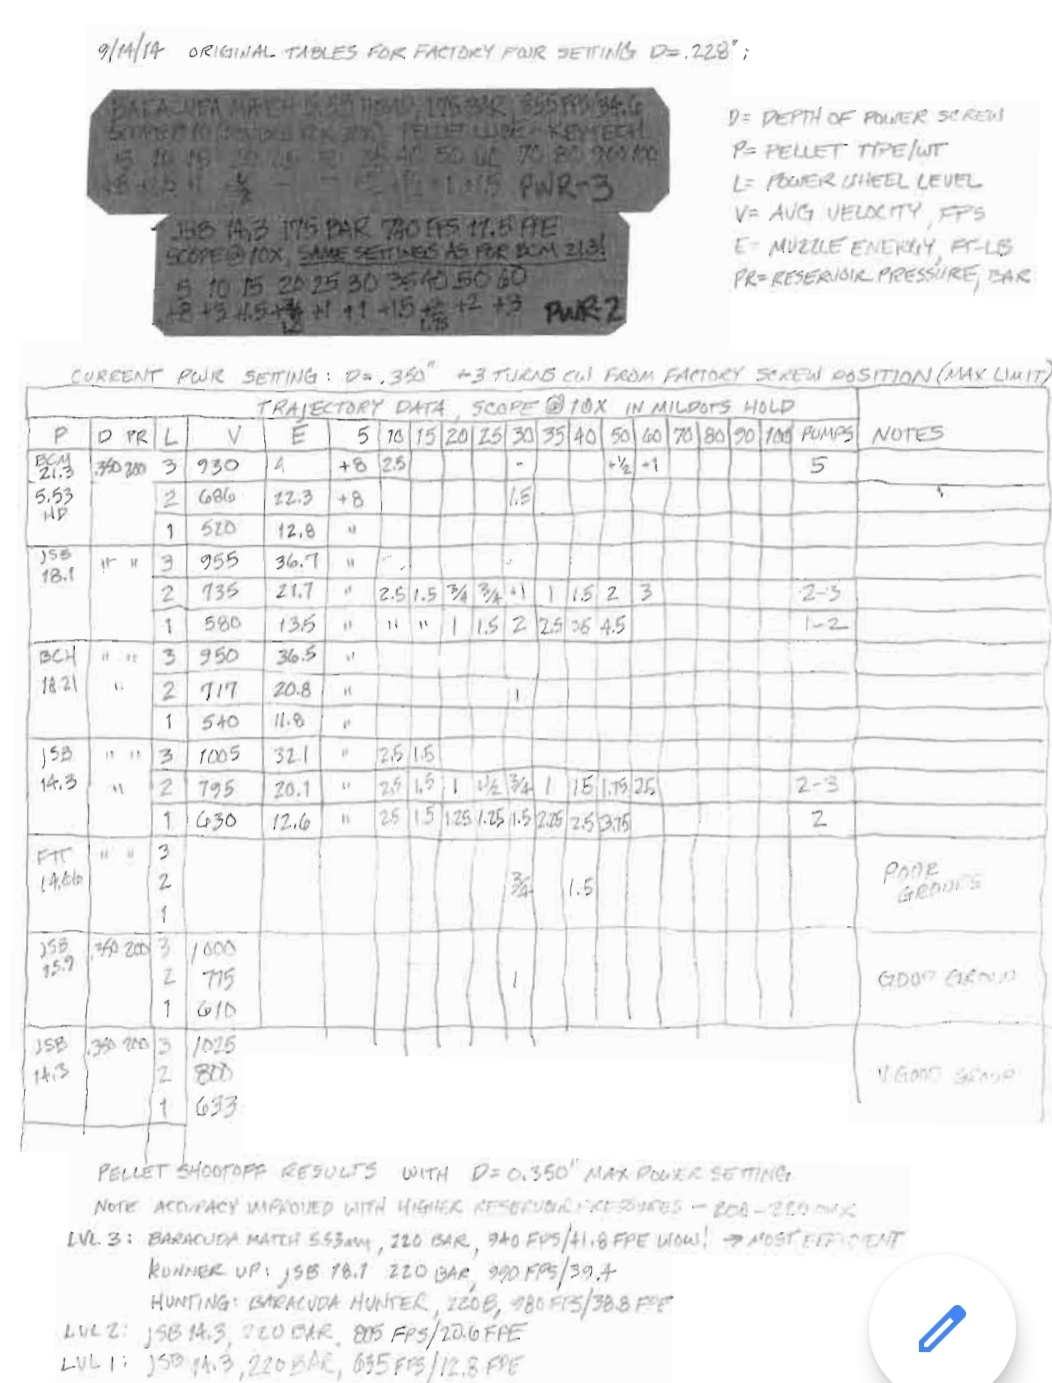 9/14/14 ORIGINAL TABLES FOR FACTORY PWR SETTING D=.228";
BARACUDA MATCH 5.53 175 BAR, 855 FPS/34.6
PELLET LUBE - KRYTECH
5 10 15 20 25 30 35 40 50 60 70 80 90 100
PWR-3
JSB 14.3 175 BAR 730 FPS 17.5 FPE
SCOPE @ 10X, SAME SETTINGS AS FOR BCM 21.3!
5 10 15 20 25 30 35 40 50 60
+8 +3 +1.5 +1 +1 +1.5 +2 +3 PWR-2
1.75
D= DEPTH OF POWER SCREW
P= PELLET TYPE/WT
L= POWER WHEEL LEVEL
V= AVG VELOCITY, FPS
E= MUZZLE ENERGY, FT-LB
PR= RESERVOIR PRESSURE, BAR
CURRENT PWR SETTING: D=.350" +3 TURNS CW FROM FACTORY SCREW POSITION (MAX LIMIT)
TRAJECTORY DATA, SCOPE @ 10X IN MILDOTS HOLD
P D PR L V E 5 10 15 20 25 30 35 40 50 60 70 80 90 100 PUMPS NOTES
BCM 21.3 .350 200 3 930 +8 2.5 - +½ +1 5
5.53 HP 2 686 22.3 +8 1.5
1 520 12.8 "
JSB 18.1 " " 3 955 36.7 "
2 735 21.7 " 2.5 1.5 ¾ ¾ +1 1 1.5 2 3 2-3
1 580 13.5 " " " 1 1.5 2 2.5 4.5 1-2
BCH 18.21 " " 3 950 36.5 "
" 2 717 20.8 " 1
1 540 11.8 "
JSB 14.3 " " 3 1005 32.1 " 2.5 1.5
" 2 795 20.1 " 2.5 1.5 1 ¾ 1 1.5 1.75 2.5 2-3
1 630 12.6 " 2.5 1.5 1.25 1.25 1.5 2.25 2.5 3.75 2
FTT 14.66 " " 3
2 ¾ 1.5 POOR GROUPS
1
JSB 15.9 .350 200 3 1000
2 775 1 GOOD GROUP
1 610
JSB 14.3 .350 200 3 1025
2 800 V.GOOD GROUP
1 633
PELLET SHOOTOFF RESULTS WITH D=0.350" MAX POWER SETTING
NOTE ACCURACY IMPROVED WITH HIGHER RESERVOIR PRESSURES - 200-220 MAX
LVL 3: BARACUDA MATCH 5.53mm, 220 BAR, 940 FPS/41.8 FPE WOW! → MOST EFFICIENT
RUNNER UP: JSB 18.1 220 BAR, 990 FPS/39.4
HUNTING: BARACUDA HUNTER, 220B, 980 FPS/38.8 FPE
LVL 2: JSB 14.3, 220 BAR, 805 FPS/20.6 FPE
LVL 1: JSB 14.3, 220 BAR, 635 FPS/12.8 FPE